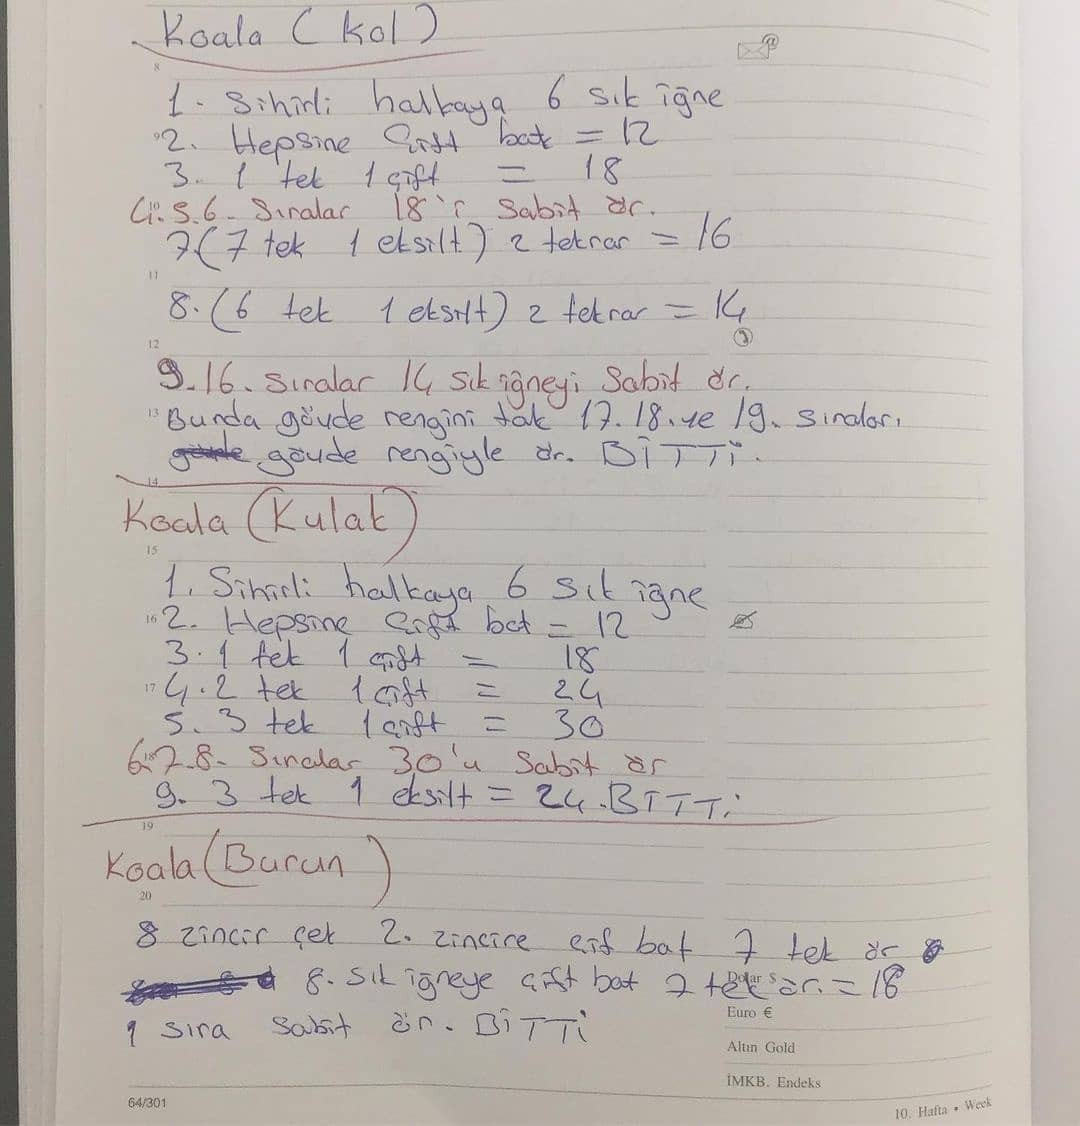 Koala (kol)
8
1. Sihirli halkaya 6 sık iğne
9
2. Hepsine Çift bat = 12
3. 1 tek 1 çift = 18
10
4. 5. 6. Sıralar 18'i Sabit ör.
7(7 tek 1 eksilt) 2 tekrar = 16
11
8. (6 tek 1 eksilt) 2 tekrar = 14
12
9.16. sıralar 14 sık iğneyi Sabit ör.
13
Bunda gövde rengini tak 17.18.ve 19. sıraları
gövde rengiyle ör. BİTTİ.
14
Koala (Kulak)
15
1. Sihirli halkaya 6 sık iğne
16
2. Hepsine Çift bat = 12
3. 1 tek 1 çift = 18
17
4. 2 tek 1 çift = 24
5. 3 tek 1 çift = 30
18
6. 7. 8. Sıralar 30'u Sabit ör
9. 3 tek 1 eksilt = 24. BİTTİ
19
Koala (Burun)
20
8 zincir çek 2. zincire çif bat 7 tek ör
8. sık iğneye çift bat 7 tek ör. = 18
Dolar $
1 sıra Sabit ör. BİTTİ
Euro €
Altın Gold
İMKB. Endeks
64/301
10. Hafta • Week